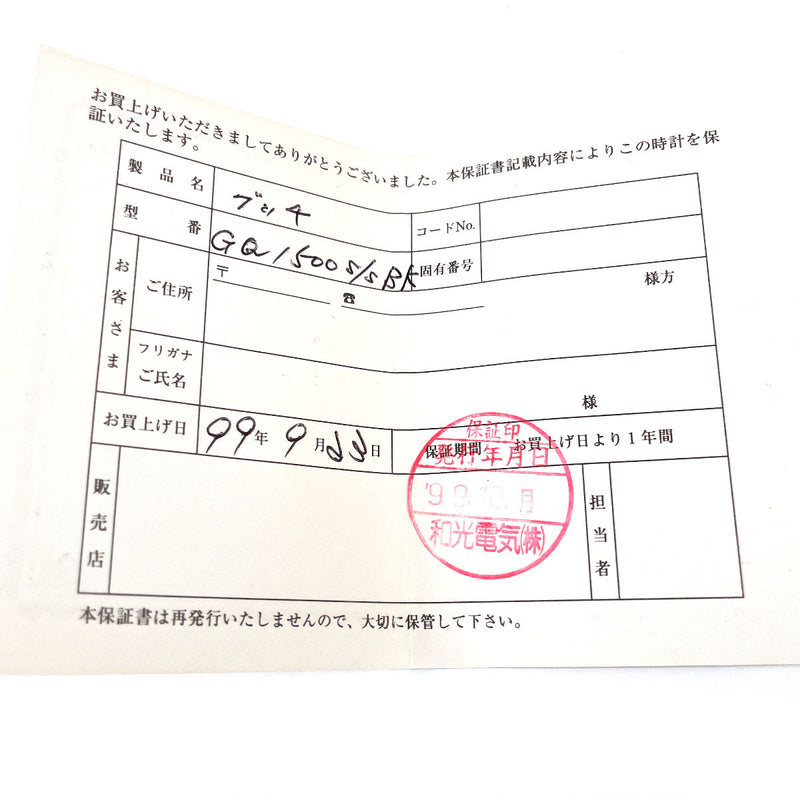 お買上げいただきましてありがとうございました。本保証書記載内容によりこの時計を保
証いたします。
製品名 グッチ コードNo.
型番 GQ1500 S/S BK 固有番号
お客さま ご住所 〒 ☎ 様方
フリガナ
ご氏名 様
お買上げ日 99年 9月 22日 保証期間 お買上げ日より1年間
販売店 担当者
保証印
発行年月日
月
和光電気(株)
本保証書は再発行いたしませんので、大切に保管して下さい。